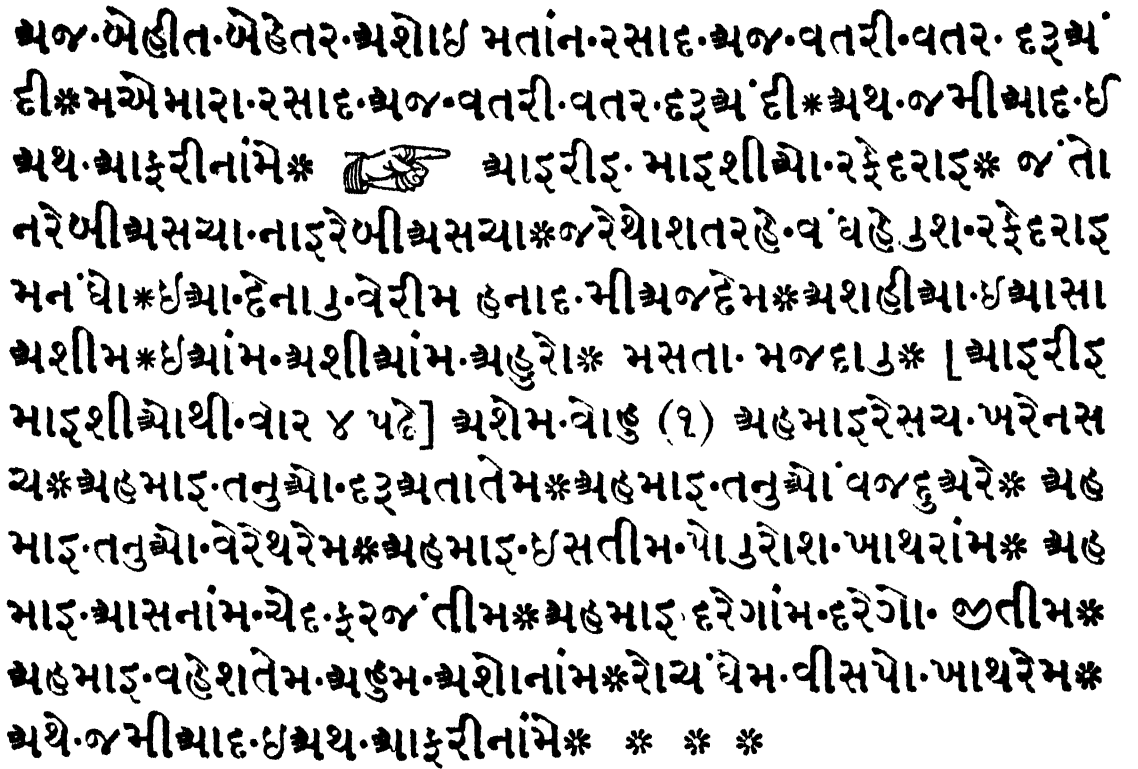 અજ·બેહીત·બેહેતર·અશોઇ મતાંન·રસાદ·અજ·વતરી·વતર· દરૂઅં
દી※મએમારા·રસાદ·અજ·વતરી·વતર·દરૂઅંદી※અથ·જમીઆદ·ઈ
અથ·આફરીનાંમે※ ☞ આફરીઈ· માઇશીઓ·રફેદરાઇ※ જંતો
નરેબીઅસચા·નાઇરેબીઅસચા※જરેથોશતરહે·વંઘહે ુશ·રફેદરાઇ
મનંઘો※ઇઆ·દેના ુ·વેરીમ હનાદ·મીઅજદેમ※અશહીઆ·ઇઆસા
અશીમ※ઇઆંમ·અશીઆંમ·અહુરો※ મસતા· મજદા ુ※ [આફરીઈ
માઇશીઓથી·વાર ૪ પઢે] અશેમ·વોહુ (૧) અહમાઇરેસચ·ખરેનસ
ચ※અહમાઇ·તનુઓ·દરૂઅતાતેમ※અહમાઇ·તનુઓ વંજદુઅરે※ અહ
માઇ·તનુઓ·વેરેથરેમ※અહમાઇ·ઇસતીમ·પો ુરોશ·ખાથરાંમ※ અહ
માઇ·આસનાંમ·ચેદ·ફરજંતીમ※અહમાઇ·દરેગાંમ·દરેગો· જીતીમ※
અહમાઇ·વહેશતેમ·અહુમ·અશોનાંમ※રોચંઘેમ·વીસપો·ખાથરેમ※
અથે·જમીઆદ·ઇઅથ·આફરીનાંમે※ ※ ※ ※